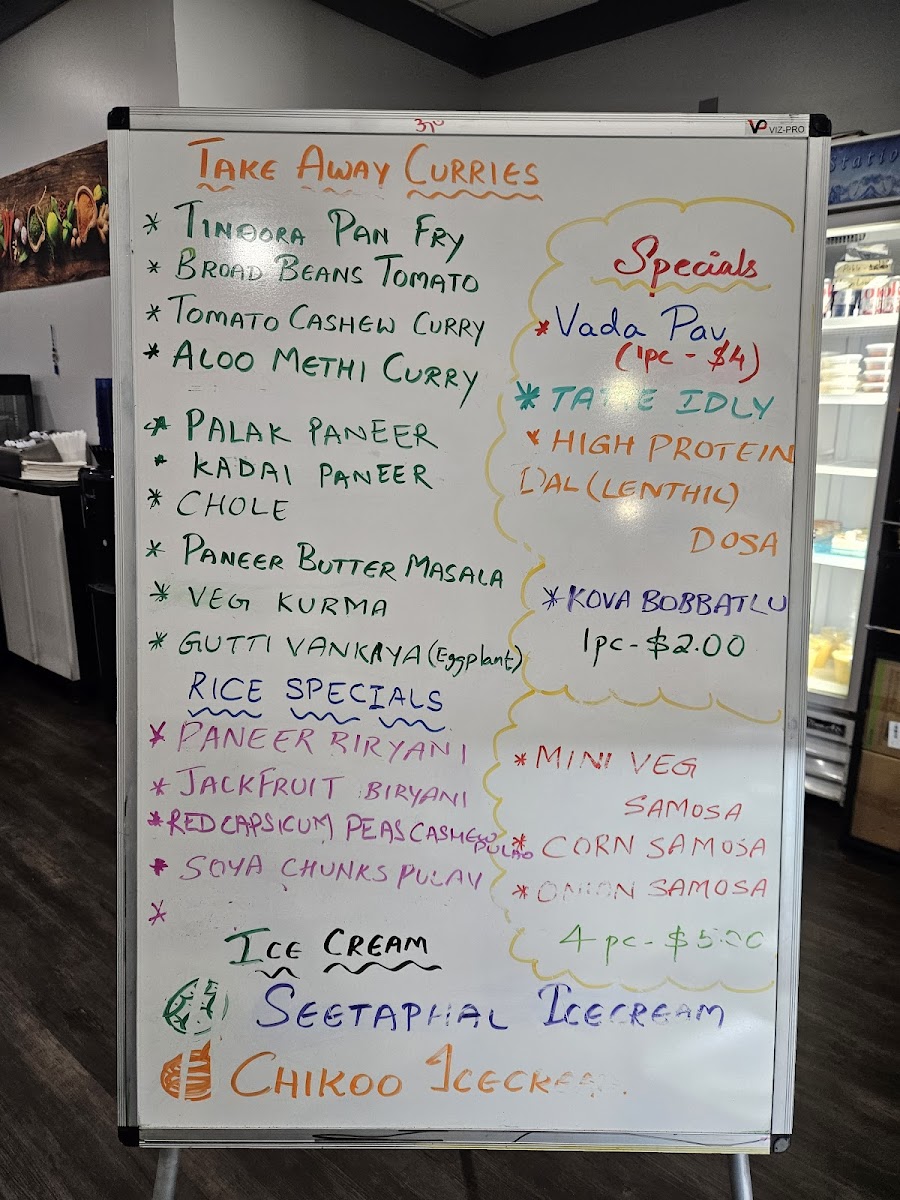 VP VIZ-PRO
TAKE AWAY CURRIES
* TINDORA PAN FRY
* BROAD BEANS TOMATO
* TOMATO CASHEW CURRY
* ALOO METHI CURRY
* PALAK PANEER
* KADAI PANEER
* CHOLE
* PANEER BUTTER MASALA
* VEG KURMA
* GUTTI VANKAYA (Eggplant)
RICE SPECIALS
* PANEER BIRYANI
* JACKFRUIT BIRYANI
* RED CAPSICUM PEAS CASHEW
PULAO
* SOYA CHUNKS PULAV
*
Specials
* Vada Pav
(1pc - $4)
* IDLY
* HIGH PROTEIN
DAL (LENTHIL)
DOSA
* KOVA BOBBATLU
1pc - $2.00
* MINI VEG
SAMOSA
* CORN SAMOSA
* ONION SAMOSA
4 pc - $5.00
ICE CREAM
SEETAPHAL ICECREAM
CHIKOO ICECREAM